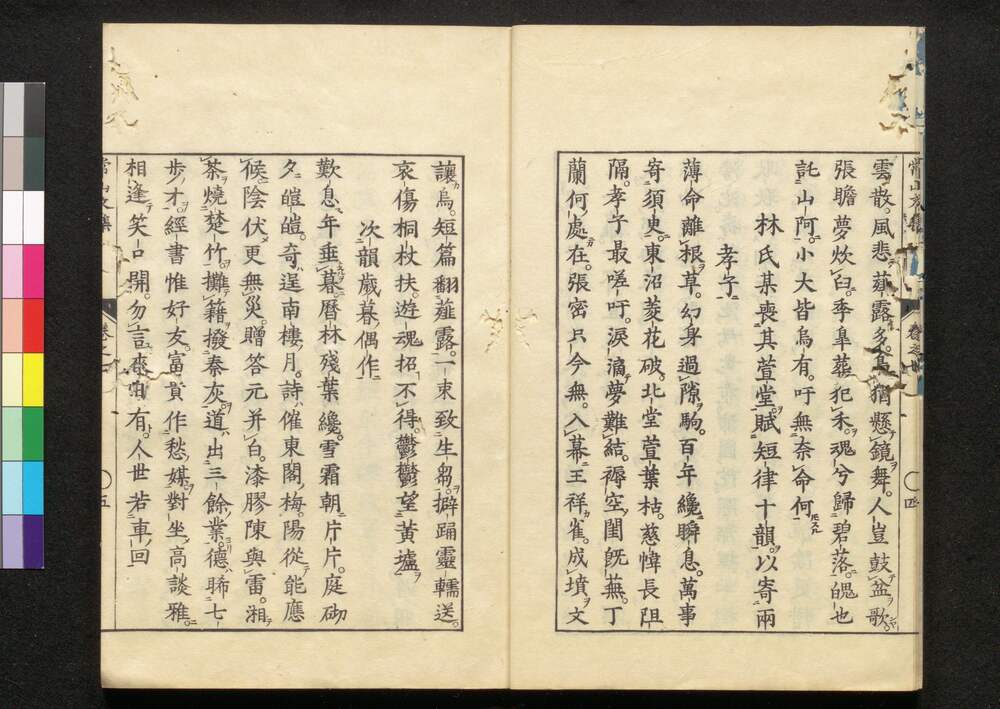 雲散。風悲薤露多。鸞猶懸鏡舞。人豈鼓盆歌。
張瞻夢炊臼。季皐葬犯禾。魂兮歸碧落。魄也
託山阿。小大皆烏有。吁無奈命何
林氏某喪其萱堂。賦短律十韻。以寄兩
孝子
薄命離根草。幻身過隙駒。百年纔瞬息。萬事
寄須臾。東沼菱花破。北堂萱葉枯。慈幃長阻
隔。孝子最嗟吁。淚滴夢難結。褥空閨既蕪。丁
蘭何處在。張密只今無。入幕王祥雀。成墳文
讓烏。短篇翻薤露。一束致生芻。擗踊靈輀送。
哀傷桐杖扶。遊魂招不得。鬱鬱望黃壚
次韻歲暮偶作
歎息年垂暮。曆林殘葉纔。雪霜朝片片。庭砌
夕皚皚。奇逞南樓月。詩催東閣梅。陽從能應
候。陰伏更無災。贈答元并白。漆膠陳與雷。湘
茶燒楚竹。攤籍撥秦灰。道出三餘業。德睎七
步才。經書惟好友。富貴作愁媒。對坐高談雅。
相逢笑口開。勿言來咱有。人世若車回
常山文集
卷之
四
五